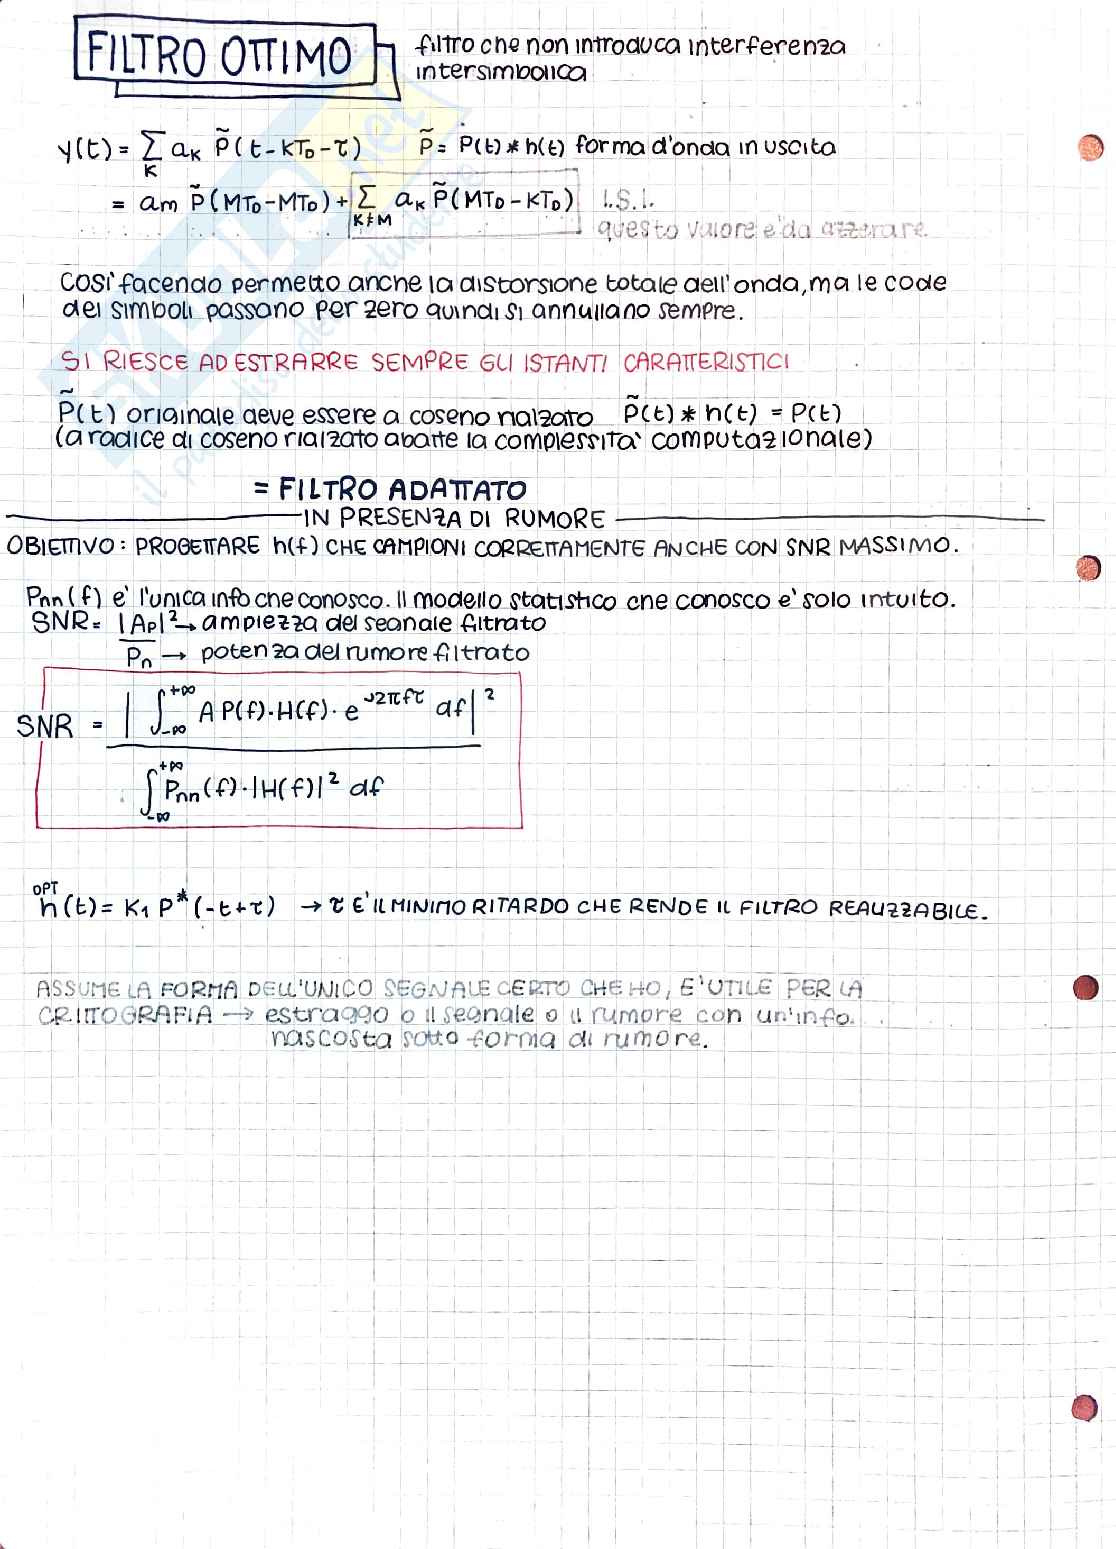 FILTRO OTTIMO
filtro che non introduca interferenza
intersimbolica
y(t) = Σ_K a_K P̃(t-KT_D-τ)    P̃ = P(t) * h(t) forma d'onda in uscita
= am P̃(MT_D-MT_D) + Σ_{K≠M} a_K P̃(MT_D-KT_D)  I.S.I.
questo valore e' da azzerare.
COSI' facendo permetto anche la distorsione totale dell'onda, ma le code
dei simboli passano per zero quindi si annullano sempre.
SI RIESCE AD ESTRARRE SEMPRE GLI ISTANTI CARATTERISTICI
P̃(t) originale deve essere a coseno rialzato  P̃(t) * h(t) = P(t)
(a radice di coseno rialzato abatte la complessita' computazionale)
= FILTRO ADATTATO
IN PRESENZA DI RUMORE
OBIETTIVO: PROGETTARE h(f) CHE CAMPIONI CORRETTAMENTE ANCHE CON SNR MASSIMO.
Pnn(f) e' l'unica info che conosco. Il modello statistico che conosco e' solo intuito.
SNR = |Ap|² → ampiezza del segnale filtrato
P̅n̅ → potenza del rumore filtrato
SNR = |∫_{-∞}^{+∞} A P(f)·H(f)·e^{J2πfτ} df|²
∫_{-∞}^{+∞} Pnn(f)·|H(f)|² df
OPT
h(t) = K₁ P*(-t+τ) → τ E' IL MINIMO RITARDO CHE RENDE IL FILTRO REALIZZABILE.
ASSUME LA FORMA DELL'UNICO SEGNALE CERTO CHE HO, E' UTILE PER LA
CRITTOGRAFIA → estraggo o il segnale o il rumore con un'info.
nascosta sotto forma di rumore.